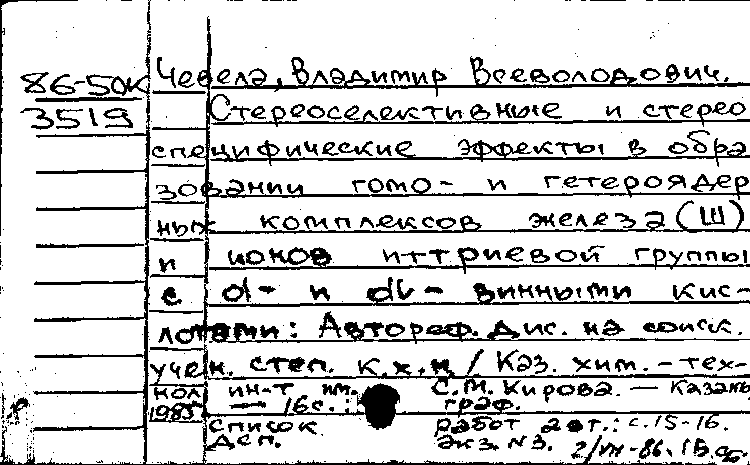 86-50К Чевела, Владимир Всеволодович.
3519 Стереоселективные и стерео
специфические эффекты в обра
зовании гомо- и гетероядер
ных комплексов железа (III)
и ионов иттриевой группы
с d- и dl- винными кис-
лотами: Автореф. дис. на соиск.
учен. степ. к.х.н / Каз. хим.-тех-
нол ин-т им. С.М. Кирова. — Казань
1985 — 16с.: граф.
Список работ авт.: с. 15-16.
Деп. экз. N3.